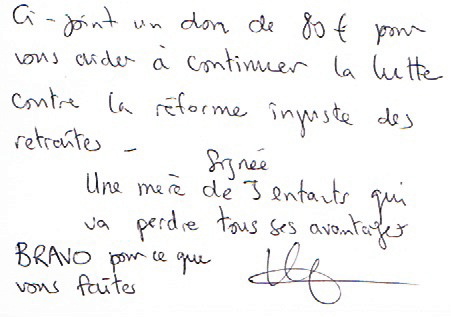 Ci-joint un don de 80 € pour
vous aider à continuer la lutte
contre la réforme injuste des
retraites -
Signée
Une mère de 3 enfants qui
va perdre tous ses avantages
BRAVO pour ce que
vous faites